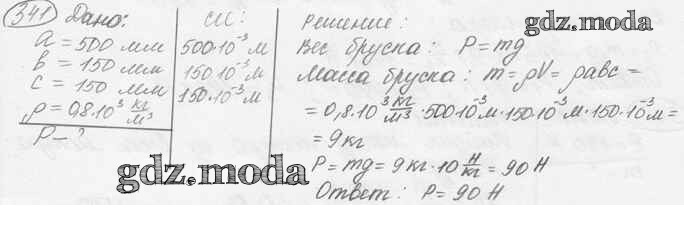 341 Дано:
a = 500 мм
b = 150 мм
c = 150 мм
ρ = 0,8·10³ кг/м³
P – ?
СИ:
500·10⁻³ м
150·10⁻³ м
150·10⁻³ м
Решение:
Вес бруска: P = mg
Масса бруска: m = ρV = ρabc =
= 0,8·10³ кг/м³ · 500·10⁻³ м · 150·10⁻³ м · 150·10⁻³ м =
= 9 кг
P = mg = 9 кг · 10 Н/кг = 90 Н
Ответ: P = 90 Н
gdz.moda
gdz.moda